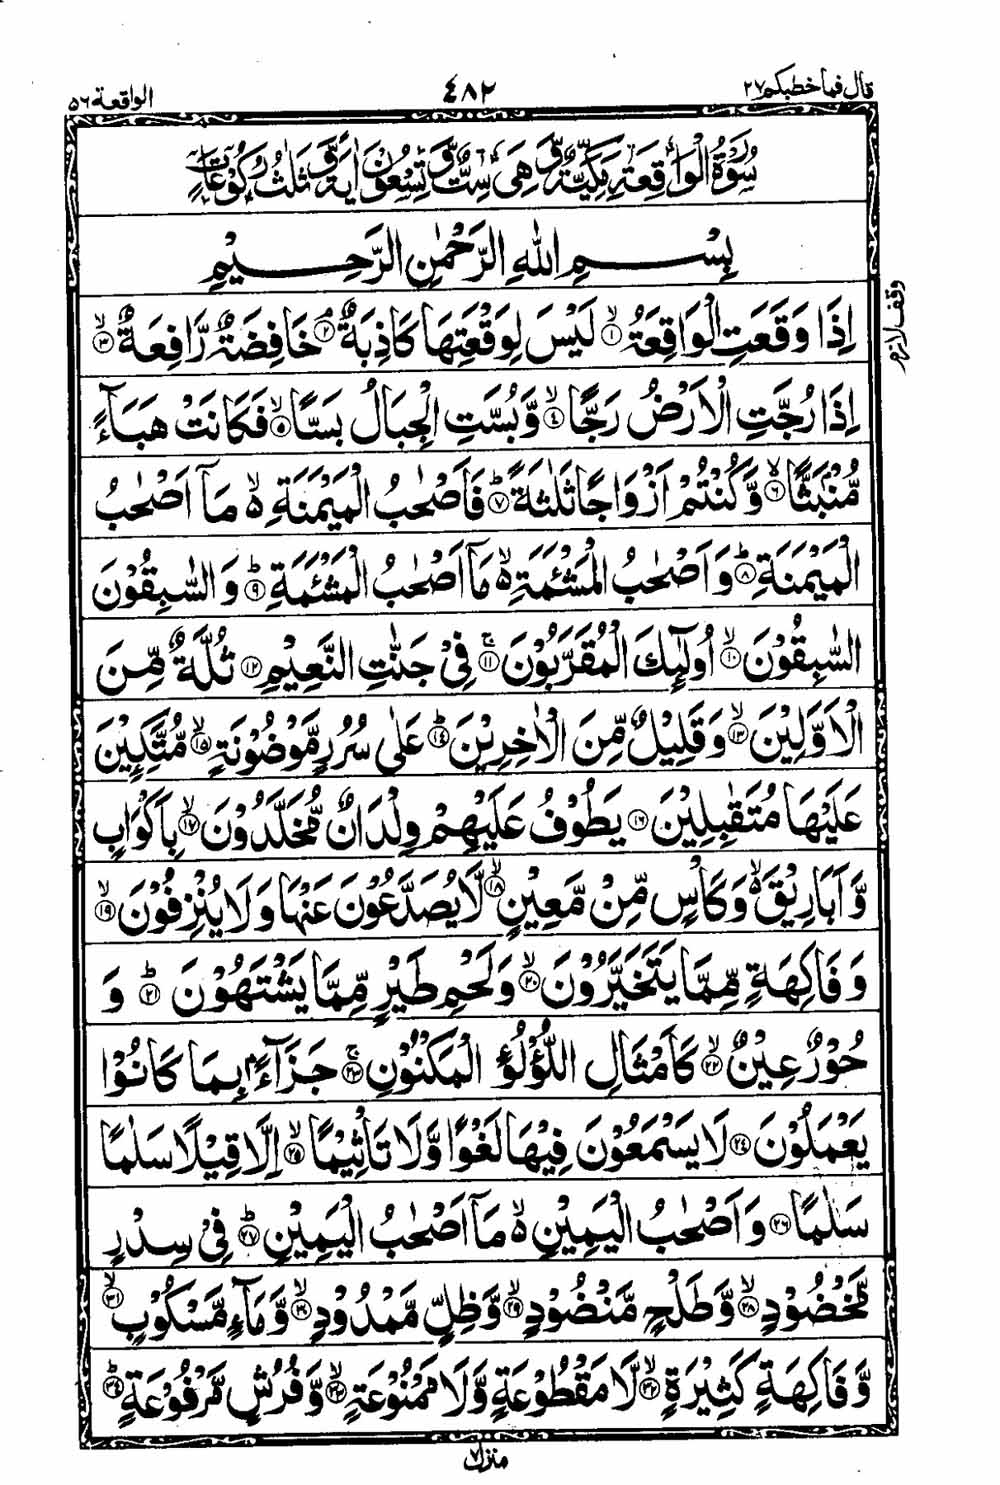 قال فما خطبكم ٢٧
٤٨٢
الواقعة ٥٦
سُوْرَةُ الْوَاقِعَةِ مَكِّيَّةٌ وَّهِيَ سِتٌّ وَّتِسْعُوْنَ اٰيَةً وَّثَلٰثُ رُكُوْعَاتٍ
بِسْمِ اللّٰهِ الرَّحْمٰنِ الرَّحِيْمِ
اِذَا وَقَعَتِ الْوَاقِعَةُ ۙ﴿۱﴾ لَيْسَ لِوَقْعَتِهَا كَاذِبَةٌ ۘ﴿۲﴾ خَافِضَةٌ رَّافِعَةٌ ۙ﴿۳﴾
وقف لازم
اِذَا رُجَّتِ الْاَرْضُ رَجًّا ۙ﴿۴﴾ وَّبُسَّتِ الْجِبَالُ بَسًّا ۙ﴿۵﴾ فَكَانَتْ هَبَآءً
مُّنْۢبَثًّا ۙ﴿۶﴾ وَّكُنْتُمْ اَزْوَاجًا ثَلٰثَةً ؕ﴿۷﴾ فَاَصْحٰبُ الْمَيْمَنَةِ ۙ۬ مَاۤ اَصْحٰبُ
الْمَيْمَنَةِ ؕ﴿۸﴾ وَاَصْحٰبُ الْمَشْـَٔمَةِ ۙ۬ مَاۤ اَصْحٰبُ الْمَشْـَٔمَةِ ؕ﴿۹﴾ وَالسّٰبِقُوْنَ
السّٰبِقُوْنَ ۙ﴿۱۰﴾ اُولٰٓئِكَ الْمُقَرَّبُوْنَ ۚ﴿۱۱﴾ فِيْ جَنّٰتِ النَّعِيْمِ ﴿۱۲﴾ ثُلَّةٌ مِّنَ
الْاَوَّلِيْنَ ۙ﴿۱۳﴾ وَقَلِيْلٌ مِّنَ الْاٰخِرِيْنَ ؕ﴿۱۴﴾ عَلٰى سُرُرٍ مَّوْضُوْنَةٍ ۙ﴿۱۵﴾ مُّتَّكِـِٕيْنَ
عَلَيْهَا مُتَقٰبِلِيْنَ ﴿۱۶﴾ يَطُوْفُ عَلَيْهِمْ وِلْدَانٌ مُّخَلَّدُوْنَ ۙ﴿۱۷﴾ بِاَكْوَابٍ
وَّاَبَارِيْقَ ۙ۬ وَكَاْسٍ مِّنْ مَّعِيْنٍ ۙ﴿۱۸﴾ لَّا يُصَدَّعُوْنَ عَنْهَا وَلَا يُنْزِفُوْنَ ۙ﴿۱۹﴾
وَفَاكِهَةٍ مِّمَّا يَتَخَيَّرُوْنَ ۙ﴿۲۰﴾ وَلَحْمِ طَيْرٍ مِّمَّا يَشْتَهُوْنَ ؕ﴿۲۱﴾ وَ
حُوْرٌ عِيْنٌ ۙ﴿۲۲﴾ كَاَمْثَالِ اللُّؤْلُؤِ الْمَكْنُوْنِ ۚ﴿۲۳﴾ جَزَآءًۢ بِمَا كَانُوْا
يَعْمَلُوْنَ ﴿۲۴﴾ لَا يَسْمَعُوْنَ فِيْهَا لَغْوًا وَّلَا تَاْثِيْمًا ۙ﴿۲۵﴾ اِلَّا قِيْلًا سَلٰمًا
سَلٰمًا ﴿۲۶﴾ وَاَصْحٰبُ الْيَمِيْنِ ۙ۬ مَاۤ اَصْحٰبُ الْيَمِيْنِ ؕ﴿۲۷﴾ فِيْ سِدْرٍ
مَّخْضُوْدٍ ۙ﴿۲۸﴾ وَّطَلْحٍ مَّنْضُوْدٍ ۙ﴿۲۹﴾ وَّظِلٍّ مَّمْدُوْدٍ ۙ﴿۳۰﴾ وَّمَآءٍ مَّسْكُوْبٍ ۙ﴿۳۱﴾
وَّفَاكِهَةٍ كَثِيْرَةٍ ۙ﴿۳۲﴾ لَّا مَقْطُوْعَةٍ وَّلَا مَمْنُوْعَةٍ ۙ﴿۳۳﴾ وَّفُرُشٍ مَّرْفُوْعَةٍ ؕ﴿۳۴﴾
منزل ٧